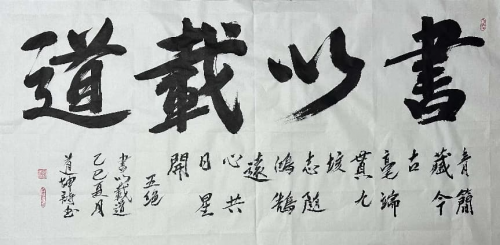 書以載道
青簡
藏今
古
毫端
貫九
垓
志隨
鴻鵠
遠
心共
日星
開
五絕
书以載道
乙巳夏月
道坤詩书